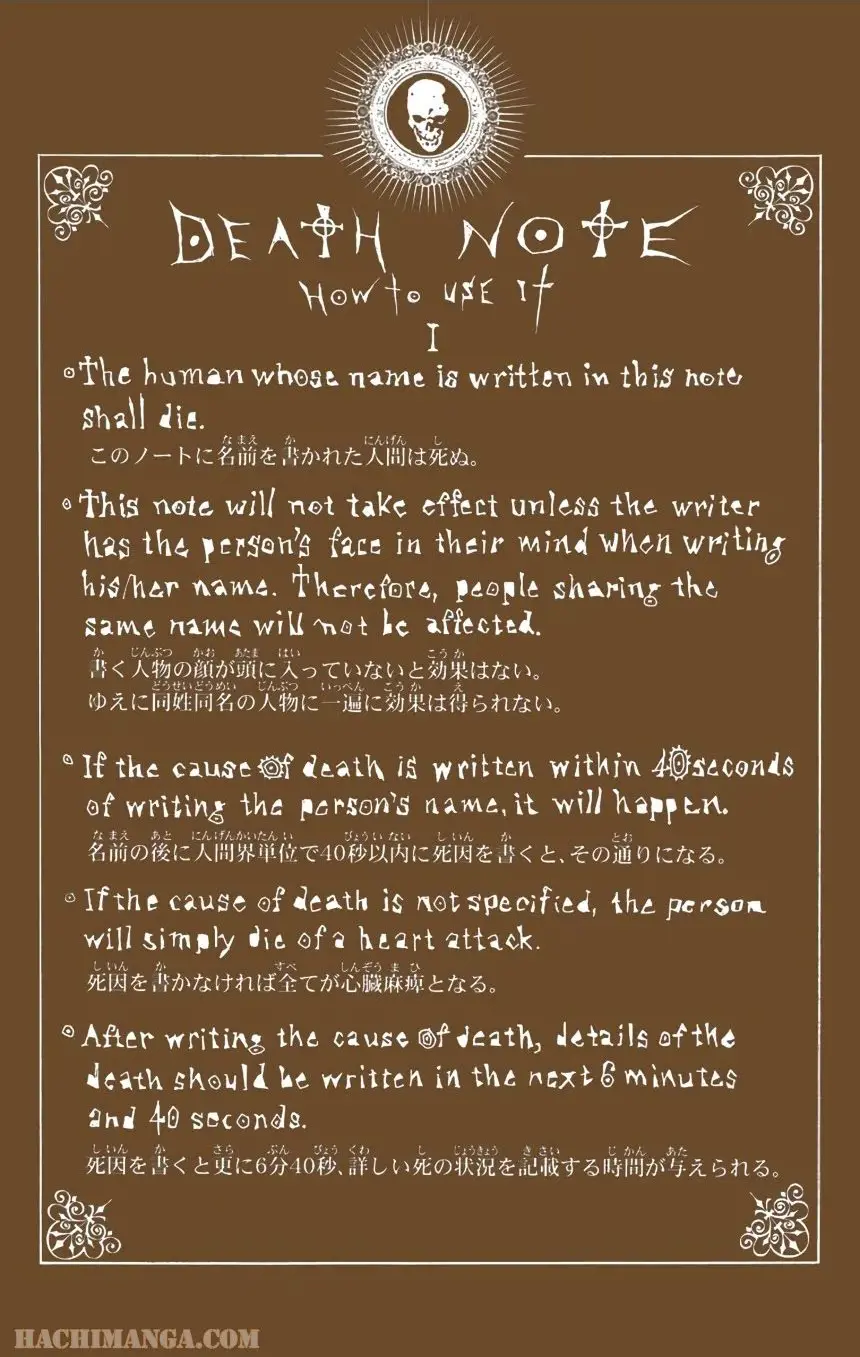 DEATH NOTE
HOW to USE It
I
The human whose name is written in this note
shall die.
このノートに名前を書かれた人間は死ぬ。
This note will not take effect unless the writer
has the person's face in their mind when writing
his/her name. Therefore, people sharing the
same name will not be affected.
書く人物の顔が頭に入っていないと効果はない。
ゆえに同姓同名の人物に一遍に効果は得られない。
If the cause of death is written within 40 seconds
of writing the person's name, it will happen.
名前の後に人間界単位で40秒以内に死因を書くと、その通りになる。
If the cause of death is not specified, the person
will simply die of a heart attack.
死因を書かなければ全てが心臓麻痺となる。
After writing the cause of death, details of the
death should be written in the next 6 minutes
and 40 seconds.
死因を書くと更に6分40秒、詳しい死の状況を記載する時間が与えられる。
HACHIMANGA.COM